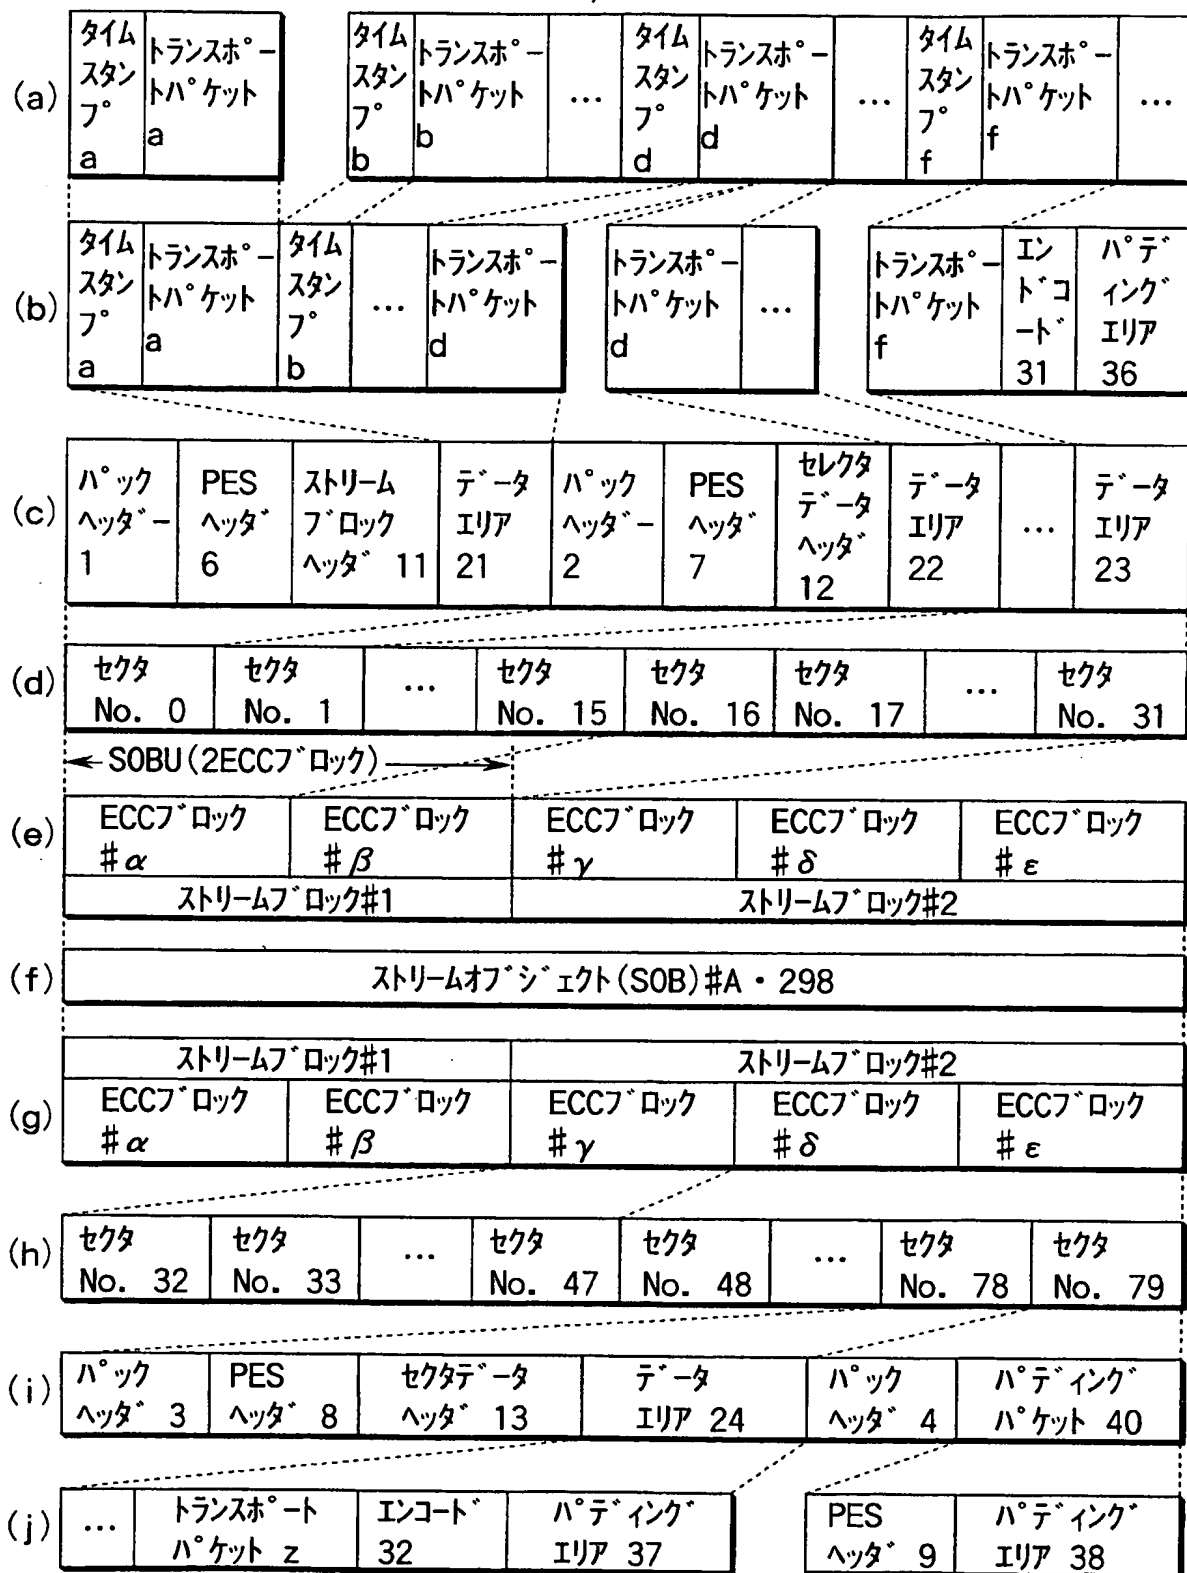 (a)
タイム
スタン
プ
a
トランスポー
トパケット
a
タイム
スタン
プ
b
トランスポー
トパケット
b
…
タイム
スタン
プ
d
トランスポー
トパケット
d
…
タイム
スタン
プ
f
トランスポー
トパケット
f
…
(b)
タイム
スタン
プ
a
トランスポー
トパケット
a
タイム
スタン
プ
b
…
トランスポー
トパケット
d
トランスポー
トパケット
d
…
トランスポー
トパケット
f
エン
ドコ
ード
31
パデ
ィング
エリア
36
(c)
パック
ヘッダー
1
PES
ヘッダ
6
ストリーム
ブロック
ヘッダ 11
データ
エリア
21
パック
ヘッダー
2
PES
ヘッダ
7
セレクタ
データ
ヘッダ
12
データ
エリア
22
…
データ
エリア
23
(d)
セクタ
No. 0
セクタ
No. 1
…
セクタ
No. 15
セクタ
No. 16
セクタ
No. 17
…
セクタ
No. 31
SOBU(2ECCブロック)
(e)
ECCブロック
#α
ECCブロック
#β
ECCブロック
#γ
ECCブロック
#δ
ECCブロック
#ε
ストリームブロック#1
ストリームブロック#2
(f)
ストリームオブジェクト(SOB)#A・298
ストリームブロック#1
ストリームブロック#2
(g)
ECCブロック
#α
ECCブロック
#β
ECCブロック
#γ
ECCブロック
#δ
ECCブロック
#ε
(h)
セクタ
No. 32
セクタ
No. 33
…
セクタ
No. 47
セクタ
No. 48
…
セクタ
No. 78
セクタ
No. 79
(i)
パック
ヘッダ 3
PES
ヘッダ 8
セクタデータ
ヘッダ 13
データ
エリア 24
パック
ヘッダ 4
パディング
パケット 40
(j)
…
トランスポート
パケット z
エンコード
32
パディング
エリア 37
PES
ヘッダ 9
パディング
エリア 38